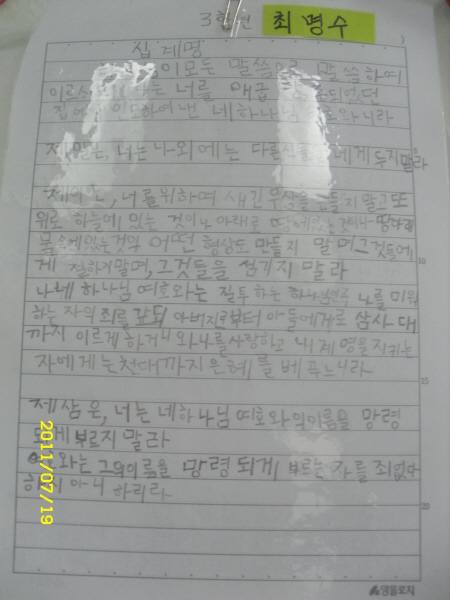 3학년 최명수
십계명
이 모든 말씀으로 말씀하여
이르시되 나는 너를 애굽 되었던
집에서 인도하여 낸 네 하나님 여호와니라
제일은, 너는 나 외에는 다른 신을 네게 두지 말라
제이는, 너를 위하여 새긴 우상을 만들지 말고 또
위로 하늘에 있는 것이나 아래로 땅에 있는 것이나 땅아래
물 속에 있는 것의 어떤 형상도 만들지 말며 그것들에
게 절하지 말며, 그것들을 섬기지 말라
나 네 하나님 여호와는 질투하는 하나님인즉 나를 미워
하는 자의 죄를 갚되 아버지로부터 아들에게로 삼사 대
까지 이르게 하거니와 나를 사랑하고 내 계명을 지키는
자에게는 천대까지 은혜를 베푸느니라
제삼은, 너는 네 하나님 여호와의 이름을 망령
되게 부르지 말라
여호와는 그의 이름을 망령되게 부르는 자를 죄없다
하지 아니하리라
5
10
15
20
2011/07/19